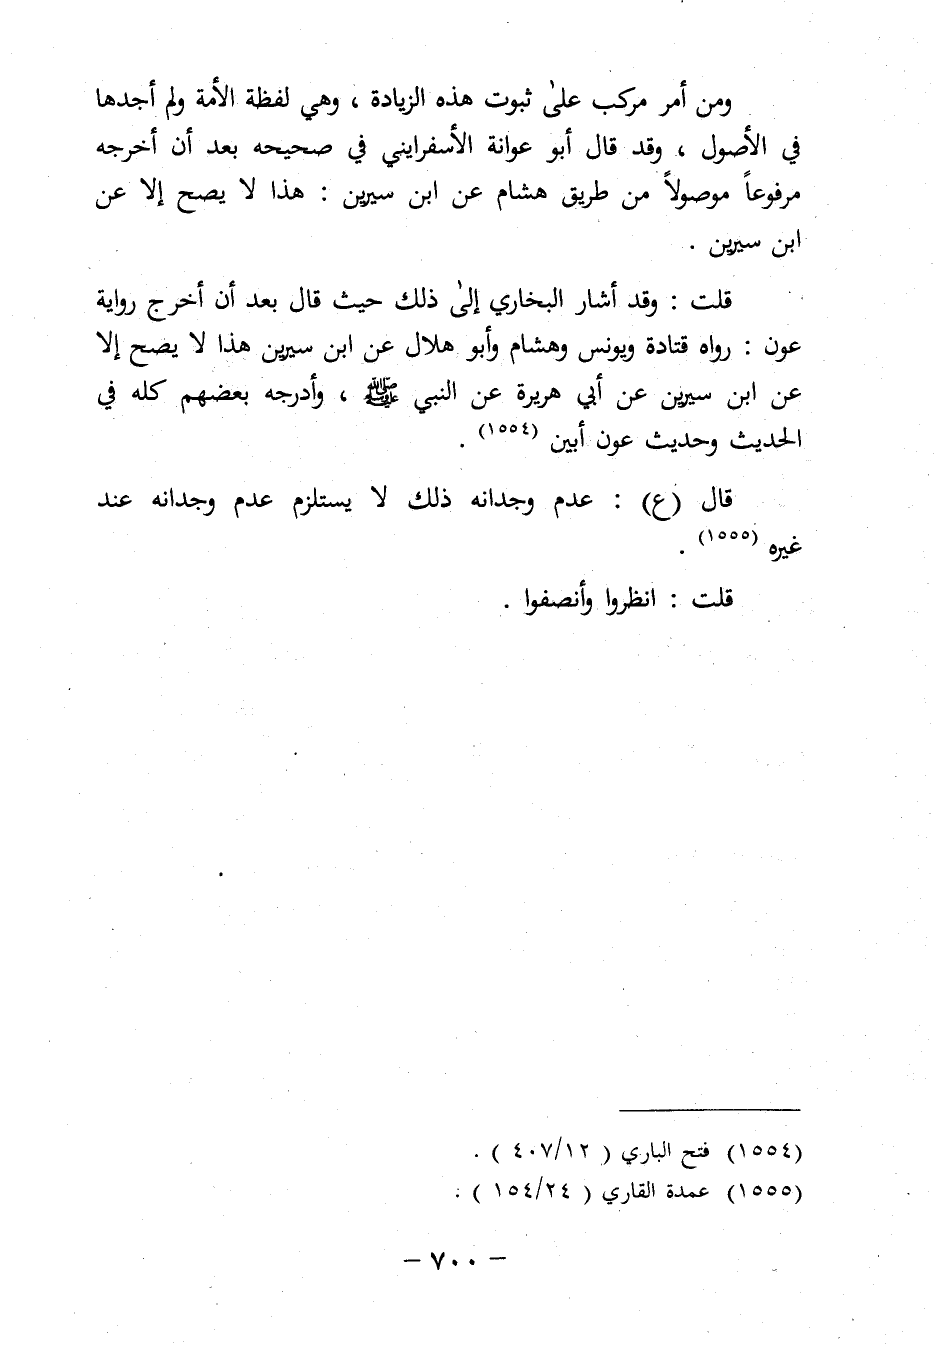 ومن أمر مركب علىٰ ثبوت هذه الزيادة ، وهي لفظة الأمة ولم أجدها
في الأصول ، وقد قال أبو عوانة الأسفرايني في صحيحه بعد أن أخرجه
مرفوعاً موصولاً من طريق هشام عن ابن سيرين : هذا لا يصح إلا عن
ابن سيرين .
قلت : وقد أشار البخاري إلىٰ ذلك حيث قال بعد أن أخرج رواية
عون : رواه قتادة ويونس وهشام وأبو هلال عن ابن سيرين هذا لا يصح إلا
عن ابن سيرين عن أبي هريرة عن النبي ﷺ ، وأدرجه بعضهم كله في
الحديث وحديث عون أبين (١٥٥٤) .
قال (ع) : عدم وجدانه ذلك لا يستلزم عدم وجدانه عند
غيره (١٥٥٥) .
قلت : انظروا وأنصفوا .
(١٥٥٤) فتح الباري ( ٤٠٧/١٢ ) .
(١٥٥٥) عمدة القاري ( ١٥٤/٢٤ ) :
– ٧٠٠ –